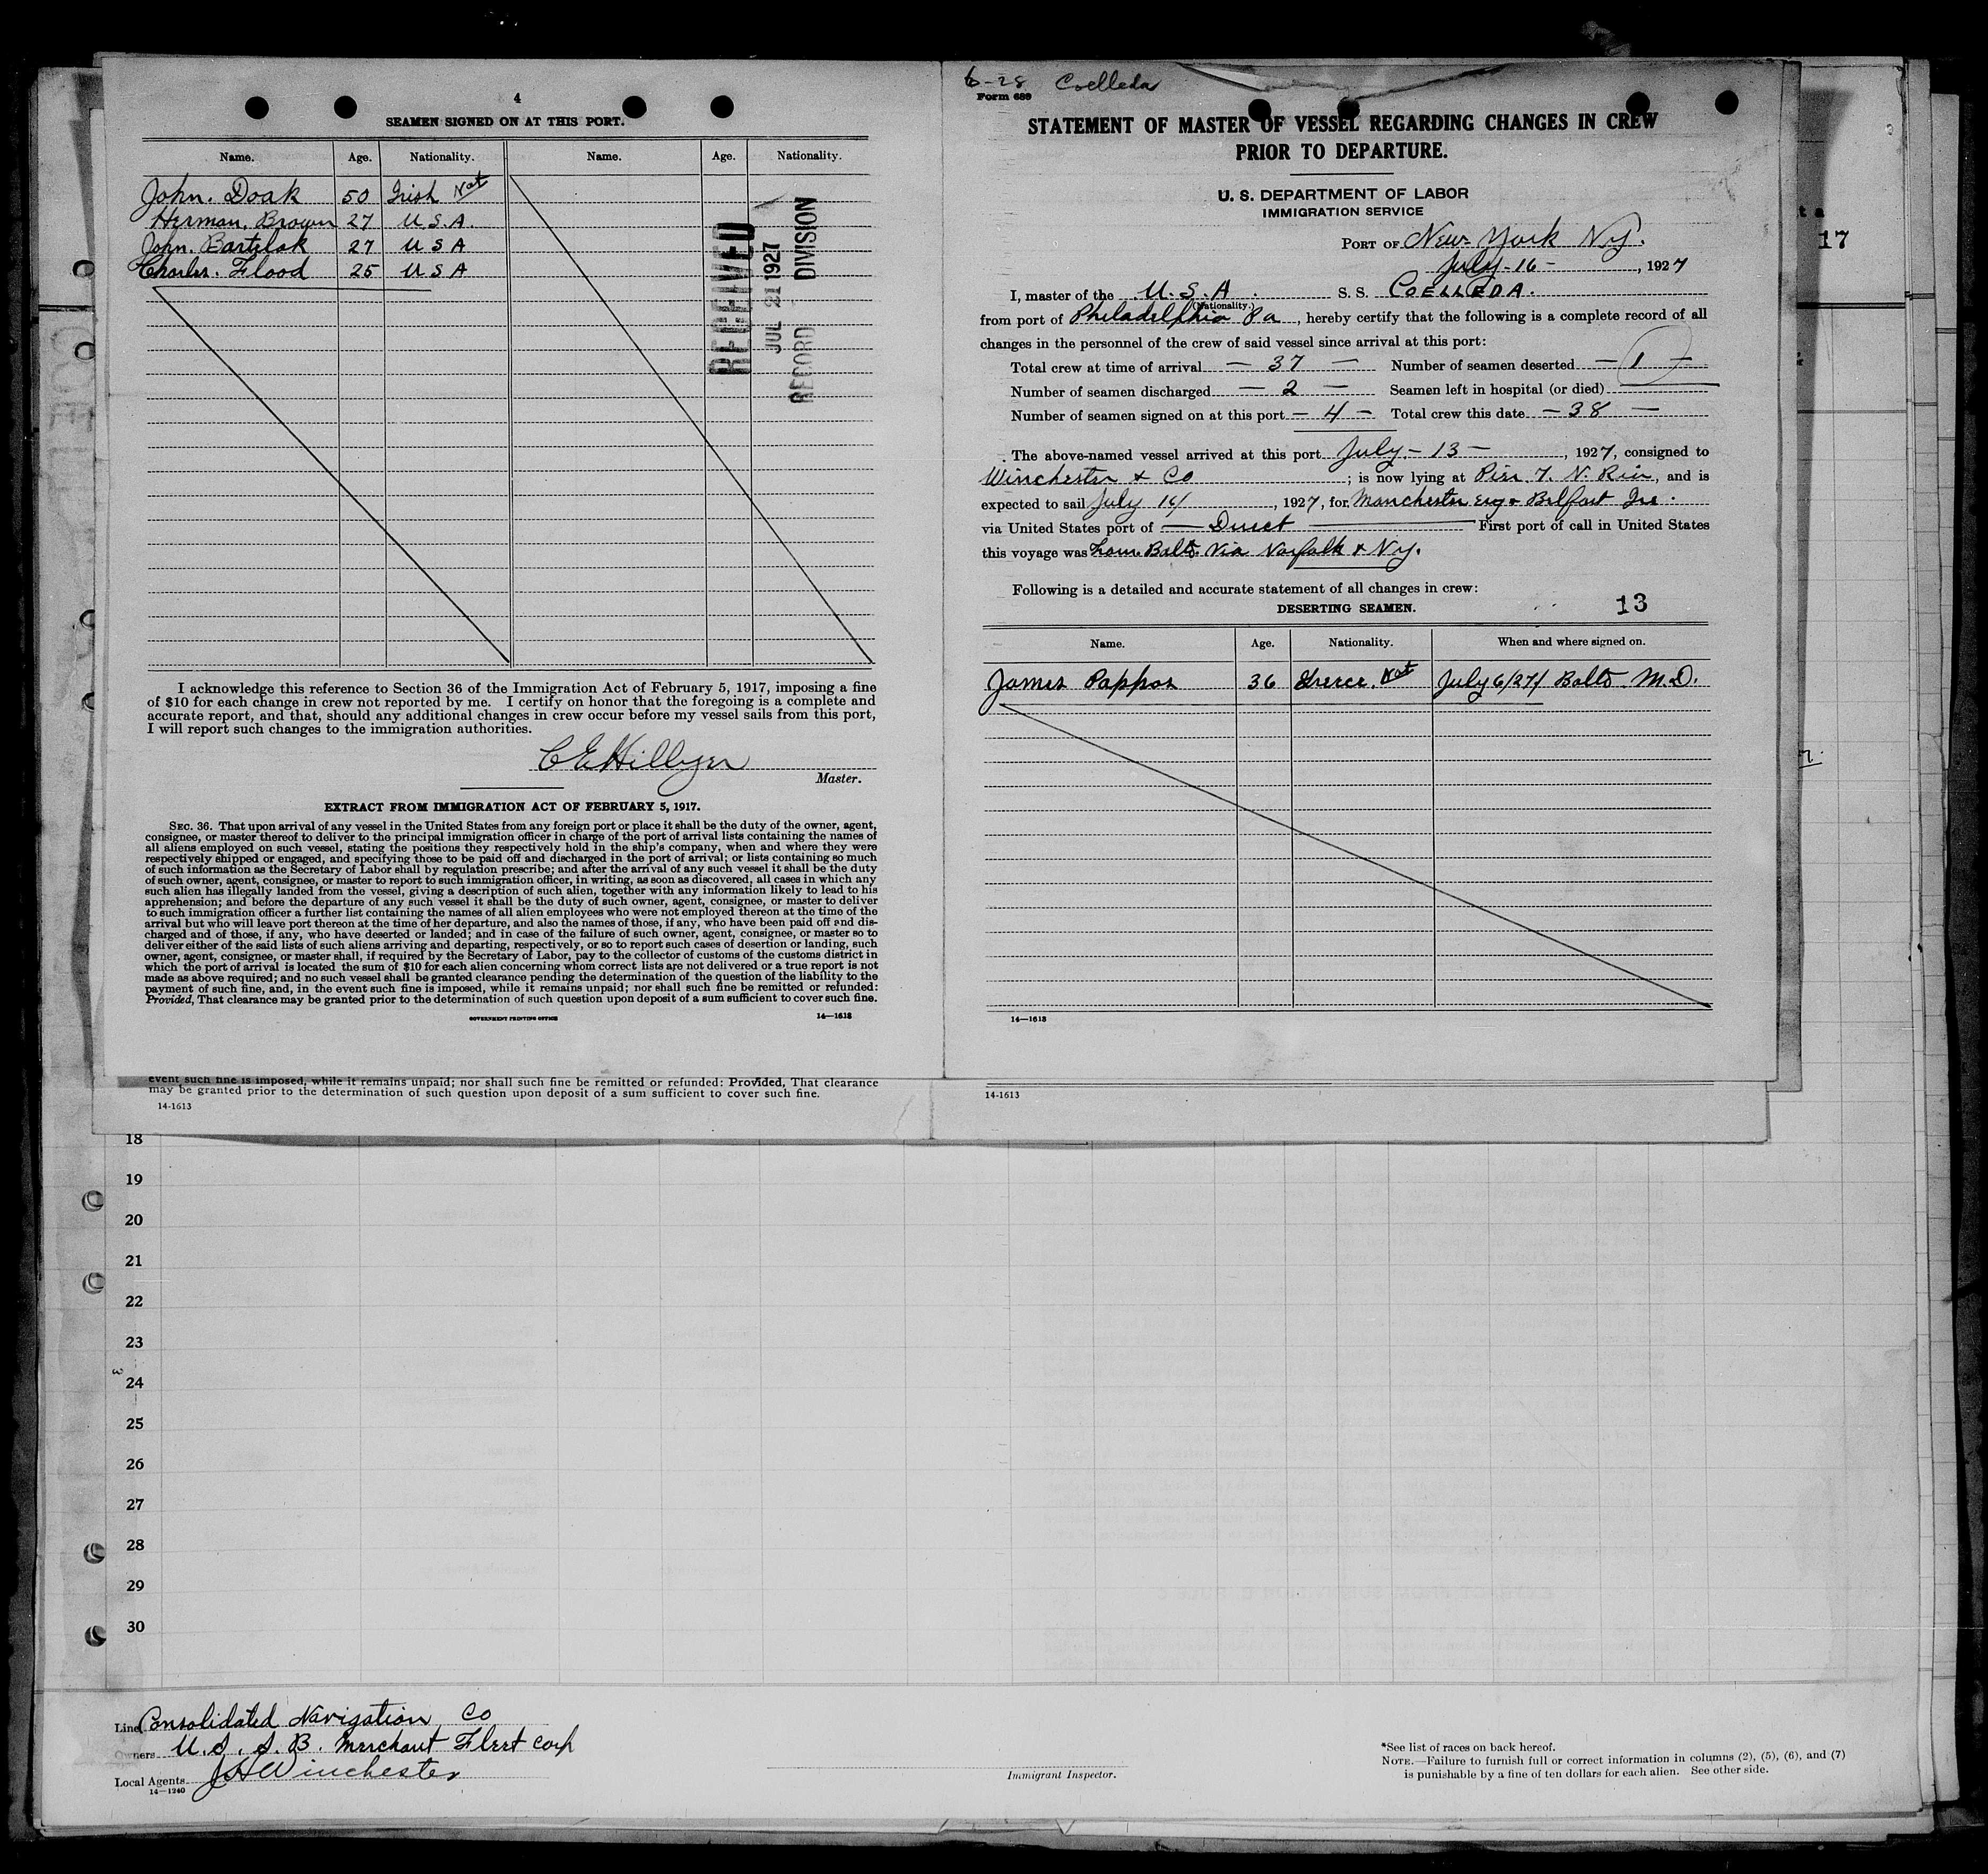 4
SEAMEN SIGNED ON AT THIS PORT.
Name. Age. Nationality. Name. Age. Nationality.
John. Doak 50 Irish Nat
Herman. Brown 27 U.S.A.
John. Bartelak 27 U S A
Charles. Flood 25 U S A
RECEIVED
JUL 21 1927
RECORD DIVISION
I acknowledge this reference to Section 36 of the Immigration Act of February 5, 1917, imposing a fine
of $10 for each change in crew not reported by me. I certify on honor that the foregoing is a complete and
accurate report, and that, should any additional changes in crew occur before my vessel sails from this port,
I will report such changes to the immigration authorities.
C E Hillyer
Master.
EXTRACT FROM IMMIGRATION ACT OF FEBRUARY 5, 1917.
SEC. 36. That upon arrival of any vessel in the United States from any foreign port or place it shall be the duty of the owner, agent,
consignee, or master thereof to deliver to the principal immigration officer in charge of the port of arrival lists containing the names of
all aliens employed on such vessel, stating the positions they respectively hold in the ship's company, when and where they were
respectively shipped or engaged, and specifying those to be paid off and discharged in the port of arrival; or lists containing so much
of such information as the Secretary of Labor shall by regulation prescribe; and after the arrival of any such vessel it shall be the duty
of such owner, agent, consignee, or master to report to such immigration officer, in writing, as soon as discovered, all cases in which any
such alien has illegally landed from the vessel, giving a description of such alien, together with any information likely to lead to his
apprehension; and before the departure of any such vessel it shall be the duty of such owner, agent, consignee, or master to deliver
to such immigration officer a further list containing the names of all alien employees who were not employed thereon at the time of the
arrival but who will leave port thereon at the time of her departure, and also the names of those, if any, who have been paid off and dis-
charged and of those, if any, who have deserted or landed; and in case of the failure of such owner, agent, consignee, or master so to
deliver either of the said lists of such aliens arriving and departing, respectively, or so to report such cases of desertion or landing, such
owner, agent, consignee, or master shall, if required by the Secretary of Labor, pay to the collector of customs of the customs district in
which the port of arrival is located the sum of $10 for each alien concerning whom correct lists are not delivered or a true report is not
made as above required; and no such vessel shall be granted clearance pending the determination of the question of the liability to the
payment of such fine, and, in the event such fine is imposed, while it remains unpaid; nor shall such fine be remitted or refunded:
Provided, That clearance may be granted prior to the determination of such question upon deposit of a sum sufficient to cover such fine.
GOVERNMENT PRINTING OFFICE 14—1613
event such fine is imposed, while it remains unpaid; nor shall such fine be remitted or refunded: Provided, That clearance
may be granted prior to the determination of such question upon deposit of a sum sufficient to cover such fine.
14-1613
6-28 Coelleda
Form 689
STATEMENT OF MASTER OF VESSEL REGARDING CHANGES IN CREW
PRIOR TO DEPARTURE.
U. S. DEPARTMENT OF LABOR
IMMIGRATION SERVICE
PORT OF New York Ny.
July-16-, 1927
I, master of the U.S.A. S. S. COELLEDA.
(Nationality.)
from port of Philadelphia Pa, hereby certify that the following is a complete record of all
changes in the personnel of the crew of said vessel since arrival at this port:
Total crew at time of arrival — 37 — Number of seamen deserted — 1 —
Number of seamen discharged — 2 — Seamen left in hospital (or died)
Number of seamen signed on at this port — 4 — Total crew this date — 38 —
The above-named vessel arrived at this port July — 13 —, 1927, consigned to
Winchester & Co; is now lying at Pier 7. N. Riv, and is
expected to sail July 16/, 1927, for Manchester Eng & Belfast Ire.
via United States port of — Direct — First port of call in United States
this voyage was from Balto. Via Norfolk & Ny.
Following is a detailed and accurate statement of all changes in crew:
DESERTING SEAMEN. 13
Name. Age. Nationality. When and where signed on.
James Pappas 36 Greece. Nat July 6/27/ Balto. M.D.
14—1613
14-1613
17
18
19
20
21
22
23
24
25
26
27
28
29
30
Line Consolidated Navigation Co
Owners U.S.S.B. Merchant Fleet Corp
Local Agents J H Winchester
14—1240
Immigrant Inspector.
*See list of races on back hereof.
NOTE.—Failure to furnish full or correct information in columns (2), (5), (6), and (7)
is punishable by a fine of ten dollars for each alien. See other side.